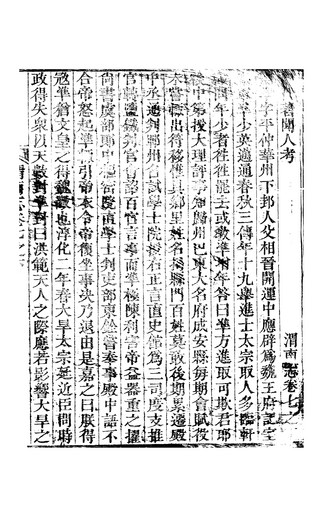 渭南志卷七之
聞人考
字平仲華州下邽人父相晉開運中應辟爲魏王府記室
準少英邁通春秋三傳年十九舉進士太宗取人多臨軒
問年少者往往罷去或教準增年答曰準方進取可欺君耶
後中第授大理評事知歸州巴東大名府成安縣每期會賦役
未嘗輒出符移惟具鄉里姓名揭縣門百姓莫敢後期累遷殿
中丞通判鄆州召試學士院授右正言直史館爲三司度支推
官轉鹽鐵判官會詔百官言事而準極陳利害帝益器重之擢
尚書虞部郎中樞密直學士判吏部東銓嘗奏事殿中語不
合帝怒起準輒引帝衣令帝復坐事決乃退由是嘉之曰朕得
寇準猶文皇之得魏徵也淳化二年春大旱太宗延近臣問時
政得失衆以天數對準對曰洪範天人之際應若影響大旱之